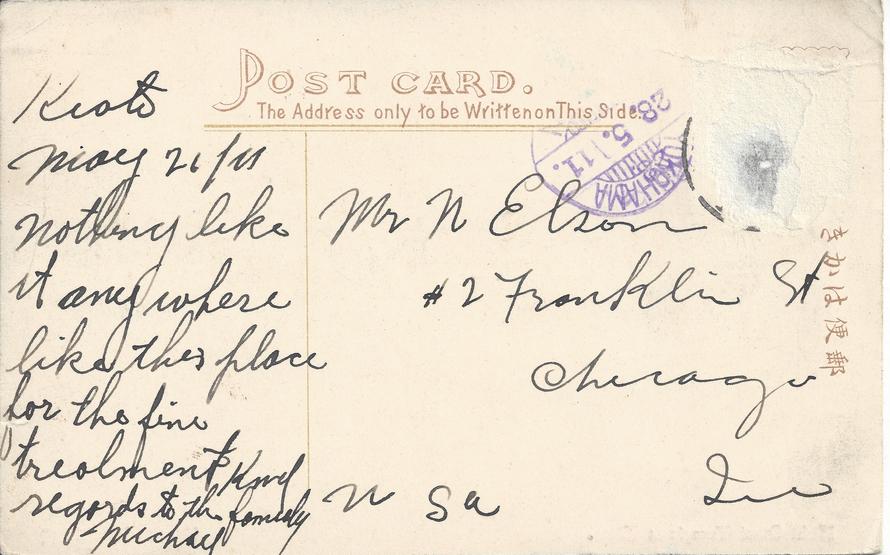 POST CARD.
The Address only to be Written on This Side.
Kioto
May 26/11
nothing like
it any where
like this place
for the fine
treatment Kind
regards to the family
Michael
YOKOHAMA
28. 5. 11.
Mr N Elson
#2 Franklin St
Chicago
Ill
U Sa
きかは便郵